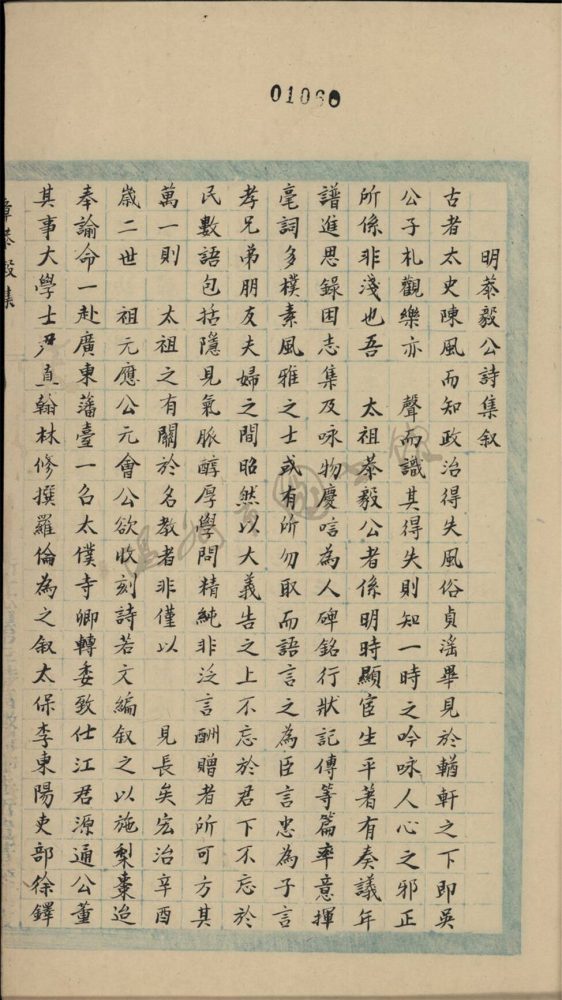 01060
明恭毅公詩集叙
古者太史陳風而知政治得失風俗貞滛畢見於輶軒之下即吳
公子札觀樂亦 聲而識其得失則知一時之吟咏人心之邪正
所係非淺也吾 太祖恭毅公者係明時顯宦生平著有奏議年
譜進思錄困志集及咏物慶唁為人碑銘行狀記傳等篇率意揮
毫詞多樸素風雅之士或有所勿取而語言之為臣言忠為子言
孝兄弟朋友夫婦之間昭然以大義告之上不忘於君下不忘於
民數語包括隱見氣脈醇厚學問精純非泛言酬贈者所可方其
萬一則 太祖之有關於名教者非僅以 見長矣宏治辛酉
歲二世 祖元應公元會公欲收刻詩若文編叙之以施梨棗迨
奉諭命一赴廣東藩臺一名太僕寺卿轉委致仕江君源通公董
其事大學士尹直翰林修撰羅倫為之叙太保李東陽吏部徐鐸
章恭毅集